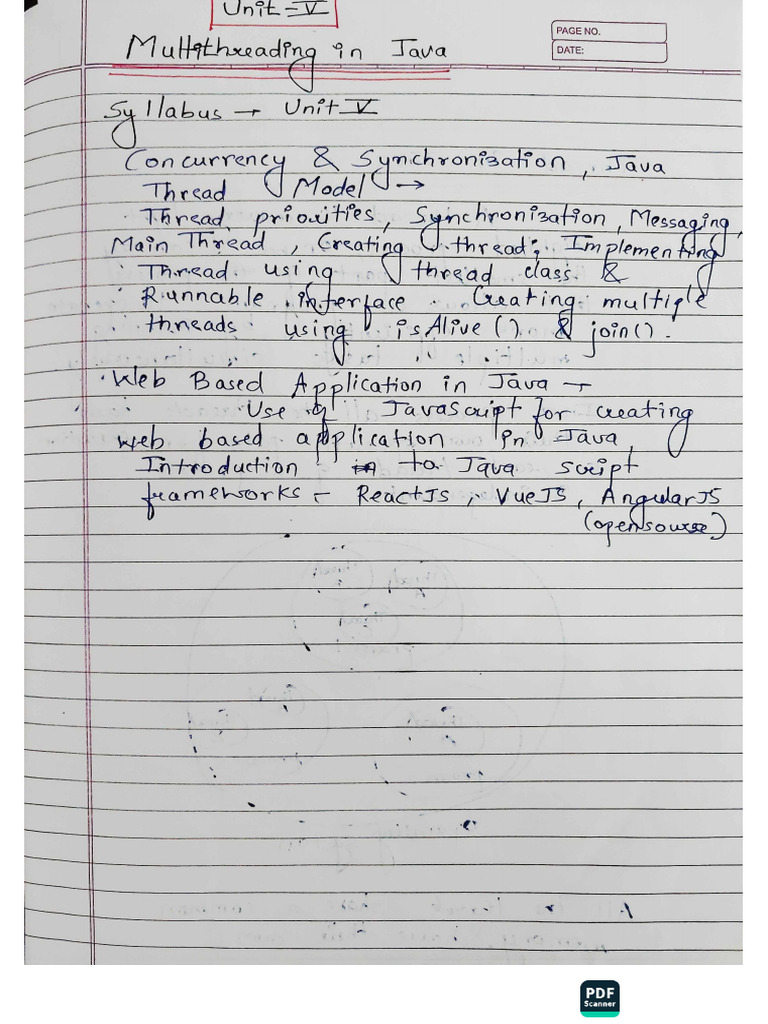 Unit-V
PAGE NO.
DATE:
Multithreading in Java
Syllabus → Unit V
Concurrency & Synchronization, Java
Thread Model →
Thread priorities, Synchronization, Messaging,
Main Thread, Creating thread; Implementing
Thread using thread class &
Runnable interface Creating multiple
threads using isAlive() & join().
Web Based Application in Java →
Use of JavaScript for creating
web based application in Java,
Introduction in to Java script
frameworks - ReactJs, VueJS, AngularJS
(opensource)
PDF
Scanner